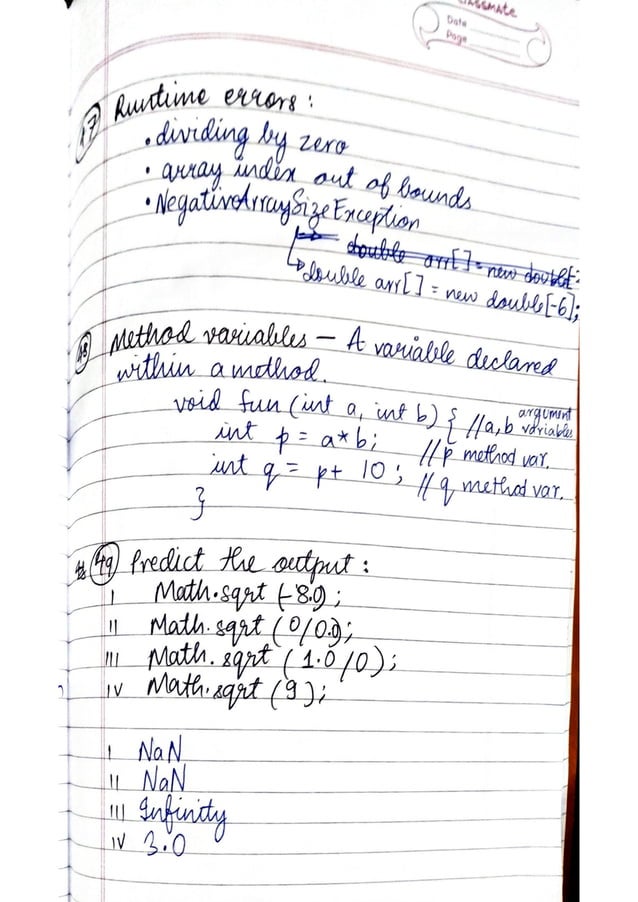 classmate
Date
Page
47 Runtime errors :
• dividing by zero
• array index out of bounds
• NegativeArraySizeException
double arr[] = new double[-
double arr[] = new double[-6];
48 Method variables – A variable declared
within a method.
void fun (int a, int b) { //a,b argument variables
int p = a*b; //p method var.
int q = p+ 10 ; // q method var.
}
49 Predict the output :
I Math.sqrt (-8.9) ;
II Math.sqrt (0/0.0);
III Math.sqrt (1.0/0);
IV Math.sqrt (9);
I NaN
II NaN
III Infinity
IV 3.0